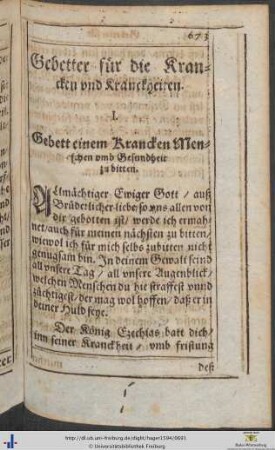 673
Gebetter für die Kran-
cken vnd Kranckheiten.
I.
Gebett einem Krancken Men-
schen vmb Gesundheit
zu bitten.
ALlmächtiger Ewiger Gott / auß
Brüderlicher liebe so vns allen von
dir gebotten ist / werde ich ermah-
net / auch für meinen nächsten zu bitten,
wiewol ich für mich selbs zubitten nicht
genugsam bin. In deinem Gewalt seind
all vnsere Tag / all vnsere Augenblick /
welchen Menschen du hie straffest vnnd
züchtigest / der mag wol hoffen / daß er in
deiner Huld seye.
Der König Ezechias batt dich /
inn seiner Kranckheit / vmb fristung
deß
http://dl.ub.uni-freiburg.de/diglit/hager1594/0691
© Universitätsbibliothek Freiburg
Baden-Württemberg